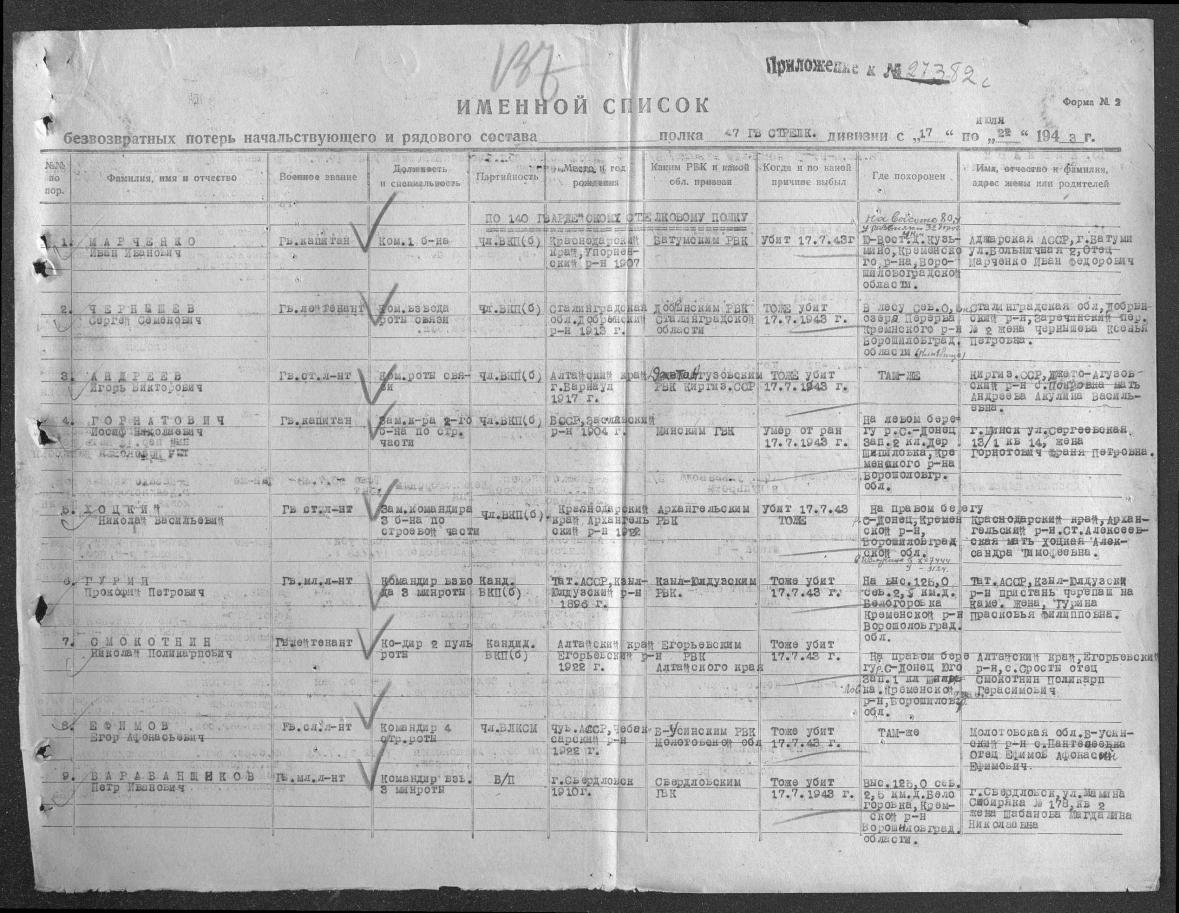 137
Приложение к № 27382с
ИМЕННОЙ СПИСОК
Форма № 2
безвозвратных потерь начальствующего и рядового состава полка 47 ГВ СТРЕЛК. дивизии с „17 “ по „22 “ июля 1943 г.
№№ по пор. Фамилия, имя и отчество Военное звание Должность и специальность Партийность Место и год рождения Каким РВК и какой обл. призван Когда и по какой причине выбыл Где похоронен Имя, отчество и фамилия, адрес жены или родителей
ПО 140 ГВАРДЕЙСКОМУ СТЕЛКОВОМУ ПОЛКУ
1. МАРЧЕНКО Гв.капитан Ком.1 б-на чл.ВКП(б) Краснодарский Батумским РВК Убит 17.7.43г Ю-Вост.К.Кузь- Аджарская АССР,г.Батуми
Иван Иванович край,Упорнен- мино,Кременско ул.Больничная 2,Отец
ский р-н 1907 го,р-на,Воро- Марченко Иван Федорович
шиловоградской
области.
2. ЧЕРНЫШЕВ Гв.лейтенант Ком.взвода чл.ВКП(б) Сталинградская Добынским РВК ТОЖЕ убит В лесу сев.О, Сталинградская обл,Добрын-
Сергей Семенович роты связи обл.Добренский Сталинградской 17.7.1943 г. озера Перевья ский р-н,Заречинский пер.
р-н 1913 г. области Кремнского р-н № 2 жена чернышева Ксенья
Ворошиловград. Петровна.
области
3. АНДРЕЕВ Гв.ст.л-нт Ком.роты свя- чл.ВКП(б) Алтайский край Джетоагузовским ТОЖЕ убит ТАМ-ЖЕ Киргиз.ССР,Джето-Агузов-
Игорь Викторович зи г.Барнаул РВК Киргиз.ССР 17.7.1943 г. ский р-н с.Покровка мать
1917 г. Андреева Акулина Василь-
евна.
4. ГОРНАТОВИЧ Гв.капитан Зам.к-ра 2-го чл.ВКП(б) БССР,Заславский На левом бере-
Иосиф Николаевич б-на по стр. р-н 1904 г. Минским ГВК Умер от ран гу р.С.-Донец г.Минск ул.Сергеевская
части 17.7.1943 г. Зап.2 кл.Дер 13/1 кв 14, жена
Шипиловка,Кре Горнотович Франя Петровна.
менского р-на
Ворошиловгр.
обл.
5. ХОЦКИЙ Гв ст.л-нт Зам.командира чл.ВКП(б) Краснодарский Архангельским Убит 17.7.43 На правом берегу
Николай Васильевич 3 б-на по край,Архангель РВК ТОЖЕ С-Донец,Кремен Краснодарский край,Архан-
строевой части ский р-н 1922 ской р-н, гельский р-н.Ст.Алексеев-
Ворошиловград ская мать Хоцкая Алек-
ской обл. сандра Тимофеевна.
6. ТУРИН Гв.мл.л-нт Командир взво Канд. Тат.АССР,Кзыл- Кзыл-Юлдузским Тоже убит На выс.125,0 Тат.АССР,Кзыл-Юлдузский
Прокофий Петрович да 3 минроты ВКП(б) Юлдузский р-н РВК. 17.7.43 г. сев.2,5 км.д. р-н пристань черепам на
1896 г. Белогоровка каме. жена, Турина
Кременской р-н Прасковья Филипповна.
Ворошиловград.
обл.
7. СМОКОТНИН Гв.лейтенант Ко-дир 2 пуль Кандид. Алтайский край Егорьевским Тоже убит
Николай Поликарпович роты ВКП(б) Егорьевский р-н РВК 17.7.43 г. На правом бере Алтайский край,Егорьевский
1922 г. Алтайского края гу р.С-Донец Юго р-н,с.Сросты отец
Зап.1 кл Смокотнин Поликарп
ка.Кременской Герасимович
р-н,Ворошиловг
обл.
8. ЕФИМОВ Гв.ст.л-нт Командир 4 Чл.ВЛКСМ Чув.АССР,Чебок В-Усинским РВК Тоже убит ТАМ-же Молотовская обл.В-Усин-
Егор Афонасьевич стр.роты сарский р-н Молотовской обл 17.7.43 г. ский р-н с.Пантелеевка
1922 г. Отец Ефимов Афонасий
Ефимович.
9. БАРАБАНЩИКОВ Гв.мл.л-нт Командир взв. Б/П г.Свердловск Свердловским Тоже убит выс.125,0 сев.
Петр Иванович 3 минроты 1910г. ГВК 17.7.1943 г. 2,5 км.д.Бело г.Свердловск,ул.Мамина
горовка,Крем- Сибиряка № 178,кв 2
ской р-н жена Шабанова Магдалина
Ворошиловград. Николаевна
области.